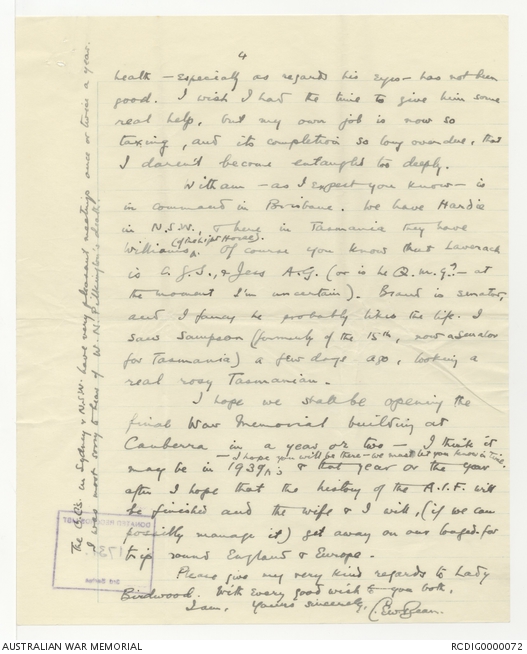 4
health - especially as regards his eyes - has not been
good. I wish I had the time to give him some
real help, but my own job is now so
taxing, and its completion so long overdue, that
I daren't become entangled too deeply.
Witham - as I expect you know - is
in command in Brisbane. We have Hardie
in N.S.W., & here in Tasmania they have
Williams (of the Light Horse). Of course you know that Laverack
is C.G.S., & Jess A.G. (or is he Q.M.G? - at
the moment I'm uncertain). Brand is senator,
and I fancy he probably likes the life. I
saw Sampson (formerly of the 15th, now a Senator
for Tasmania) a few days ago, looking a
real rosy Tasmanian.
I hope we shall be opening the
final War Memorial building at
Canberra in a year or two - I think it
may be in 1939 - I hope you will be there - we must let you know in time. & that year or the year
after I hope that the history of the A.I.F. will
be finished and the wife & I will, (if we can
possibly manage it) get away on our longed-for
trip round England & Europe.
Please give my very kind regards to Lady
Birdwood. With every good wish to you both,
I am, Yours sincerely, C.E.W. Bean.
The C.O's. in Sydney & N.S.W. have very pleasant meetings once or twice a year.
I was most sorry to hear of W. N. Pilkington's death.
AUSTRALIAN WAR MEMORIAL
RCDIG0000072